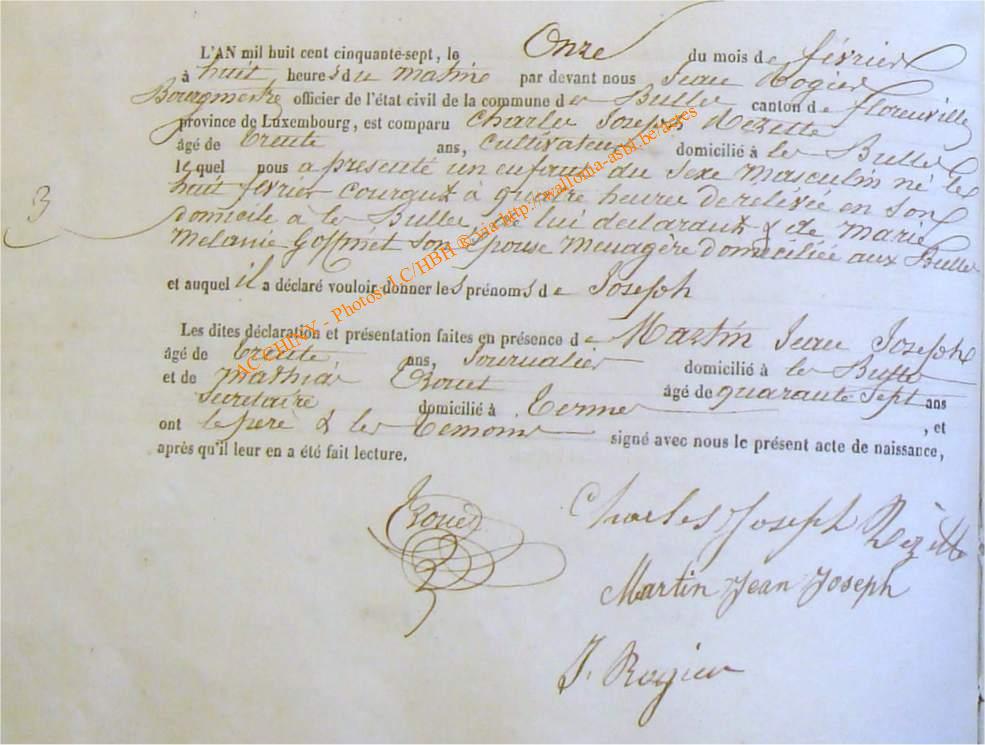 L'AN mil huit cent cinquante-sept, le Onze du mois de février
à huit heures du matin par devant nous Jean Rogier
Bourgmestre officier de l'état civil de la commune de les Bulles canton de florenville
province de Luxembourg, est comparu Charles Joseph Rezette
âgé de trente ans, cultivateur domicilié à les Bulles
lequel nous a presenté un enfant du sexe masculin né le
huit février courant à quatre heures de relevée en son
domicile à les Bulles de lui declarant & de marie
Melanie Goffinet son épouse menagère domiciliée aux Bulles
3
et auquel il a déclaré vouloir donner les prénoms de Joseph
Les dites déclaration et présentation faites en présence de Martin Jean Joseph
âgé de trente ans, Journalier domicilié à les Bulles
et de mathias âgé de quarante sept ans
Secretaire domicilié à termes , et
ont le père & les temoins signé avec nous le présent acte de naissance,
après qu'il leur en a été fait lecture.
Charles Joseph Rézette
Martin Jean Joseph
J. Rogier
AC CHINY - Photos: J.C/HBH ® via http://walloma-asbl.be/actes